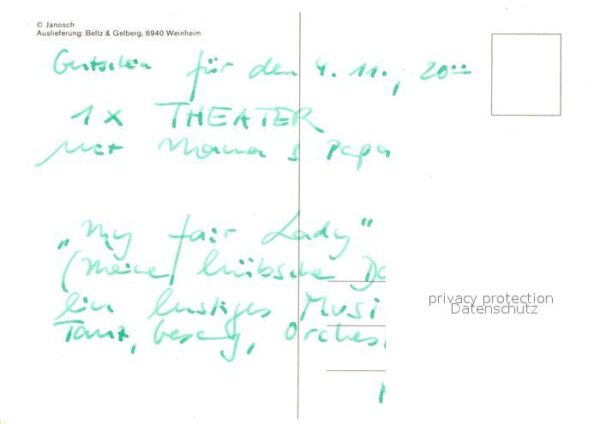 © Janosch
Auslieferung: Beltz & Gelberg, 6940 Weinheim
Gutschein für den 4. 11., 20⁰⁰
1 x THEATER
mit Mama & Papa
„My fair Lady“
(meine hübsche Da
ein lustiges Musi
Tanz, Gesang, Orches
privacy protection
Datenschutz